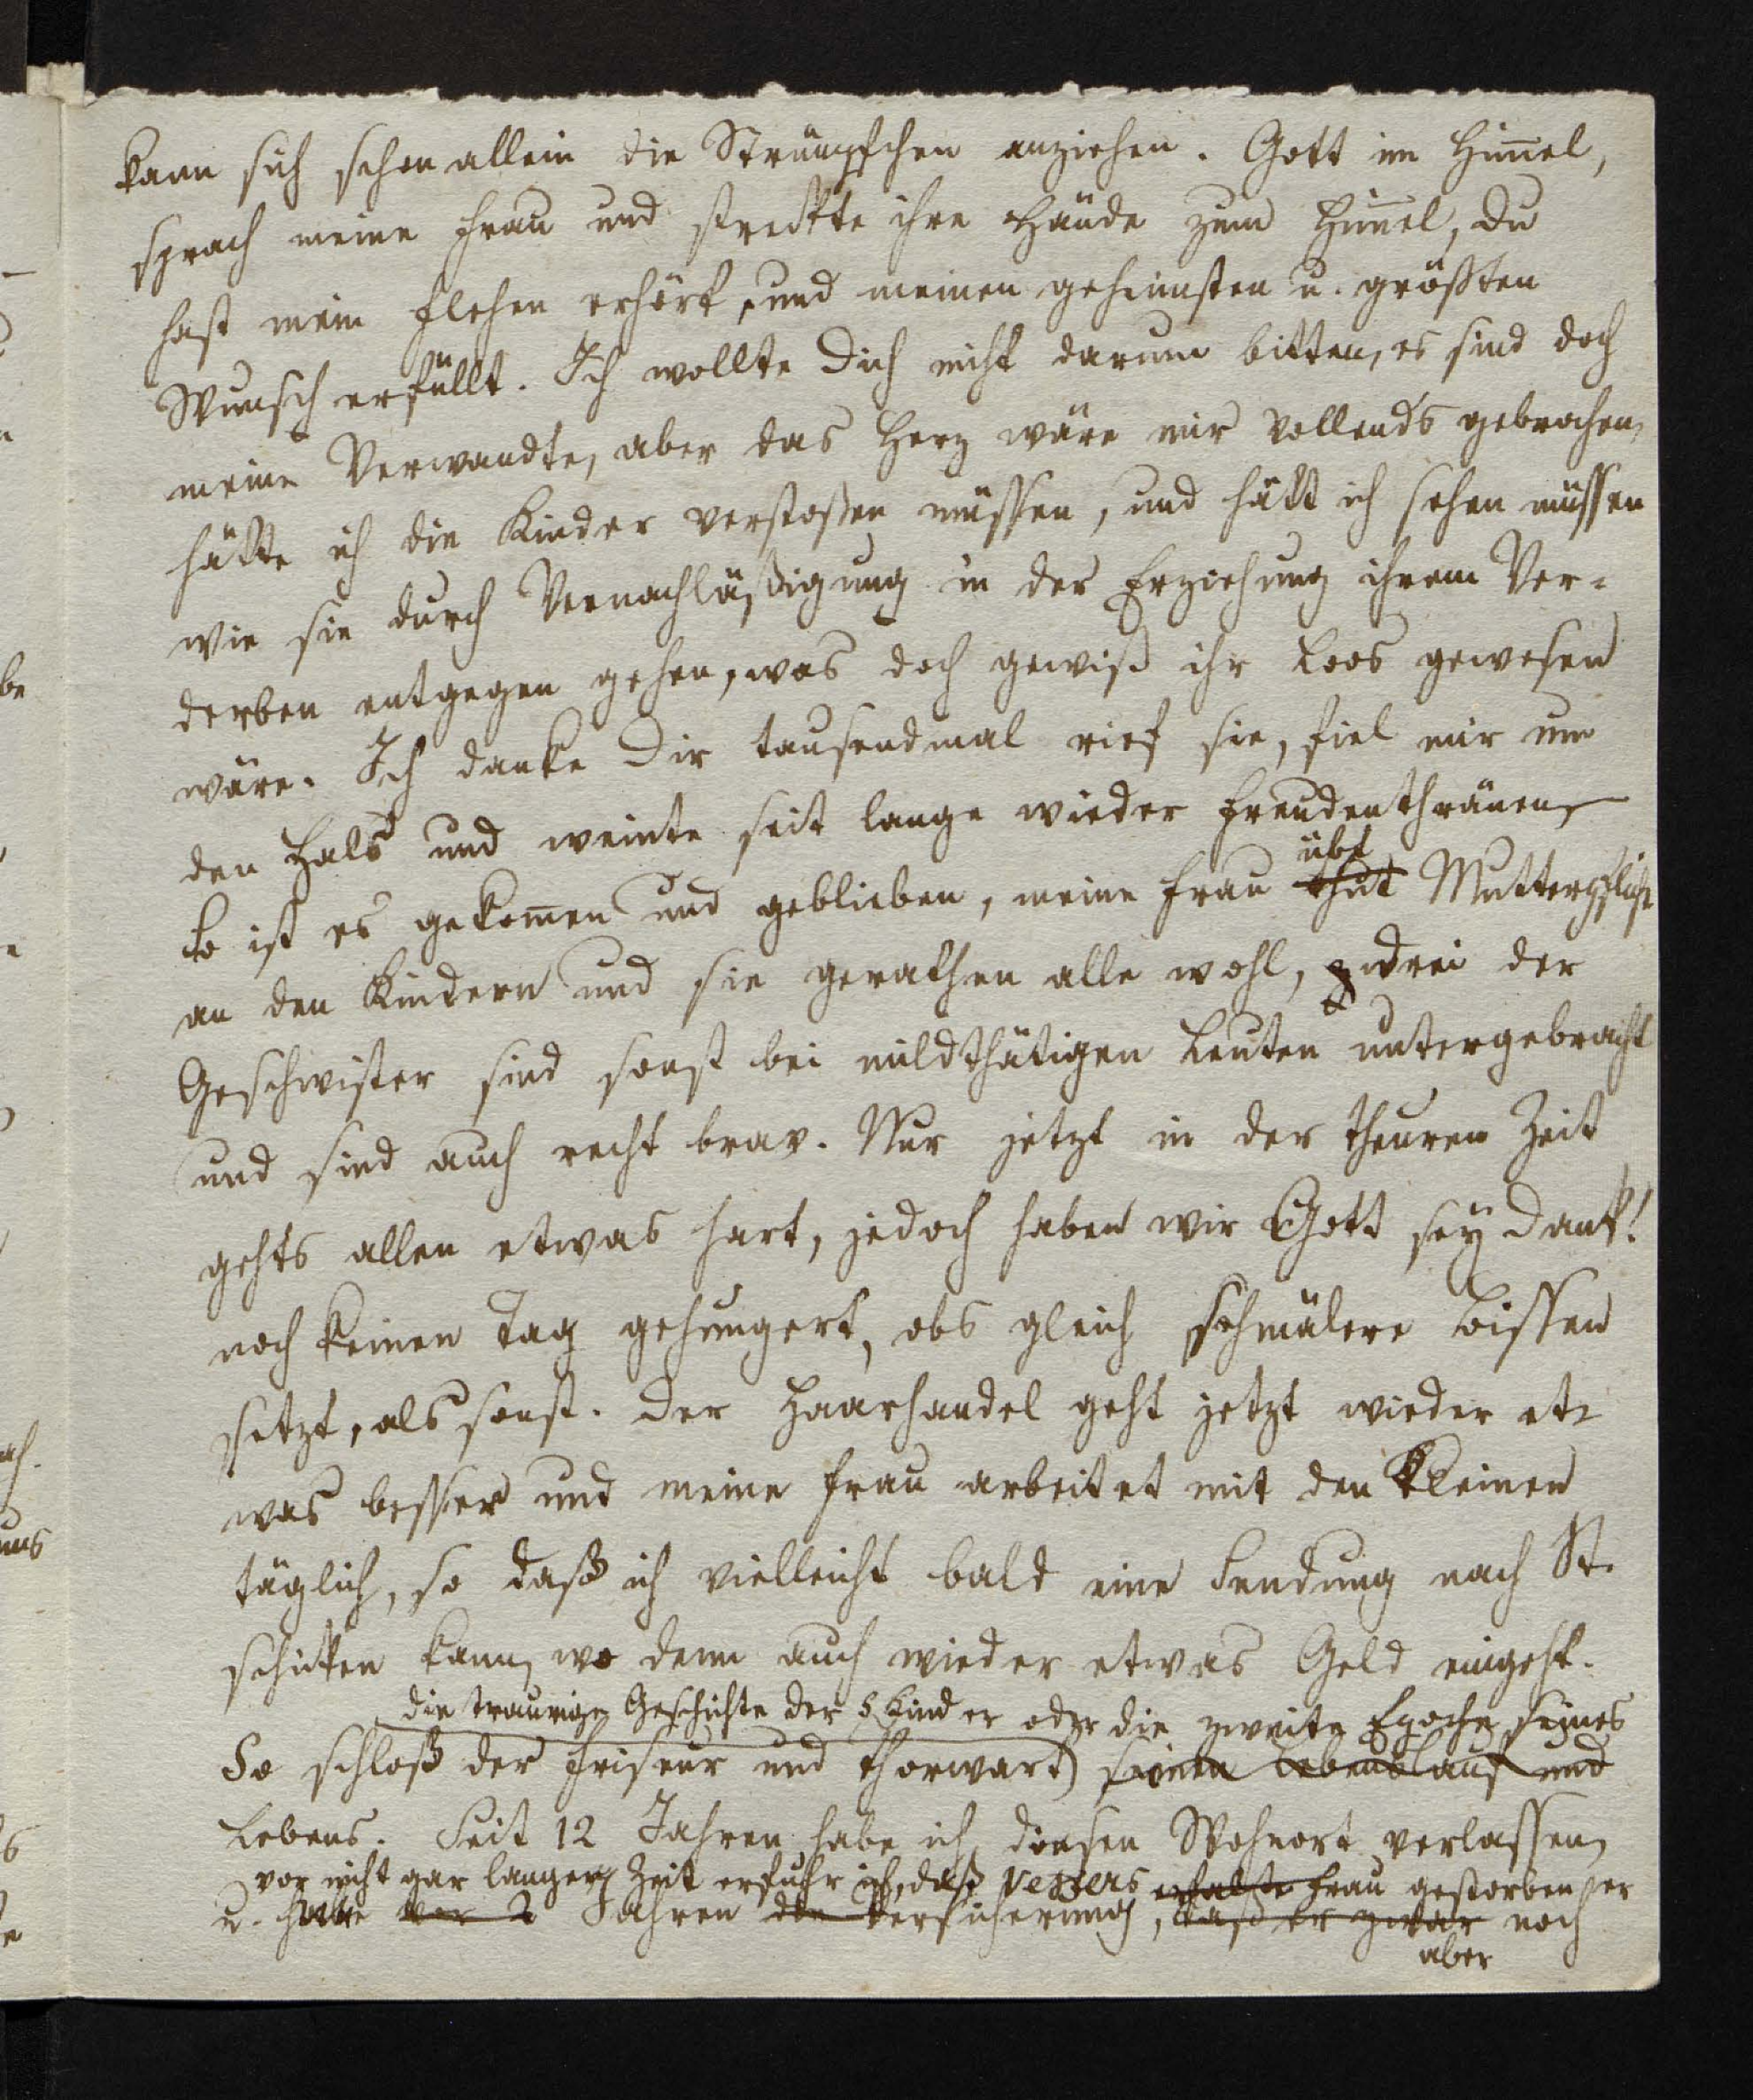 kann sich schon allein die Strümpfchen anziehen. Gott im Him̄el,
sprach meine Frau und streckte ihre Hände zum Him̄el, du
hast mein Flehen erhört, und meinen geheimsten u. größten
Wunsch erfüllt. Ich wollte Dich nicht darum bitten, es sind doch
meine Verwandte, aber das Herz wäre mir vollends gebrochen,
hätte ich die Kinder verstoßen müssen, und hätt ich sehen müssen
wie sie durch Vernachläßigung in der Erziehung ihrem Ver-
derben entgegen gehen, was doch gewiß ihr Loos gewesen
wäre. Ich danke Dir tausendmal rief sie, fiel mir um
den Hals und weinte seit lange wieder Freudenthränen,
übt
So ist es gekom̄en und geblieben, meine Frau thut Mutterpflicht
an den Kindern und sie gerathen alle wohl, drei der
Geschwister sind sonst bei mildthätigen Leuten untergebracht
und sind auch recht brav. Nur jetzt in der theuren Zeit
gehts allen etwas hart, jedoch haben wir Gott sey Dank!
noch keinen Tag gehungert, obs gleich schmälere Bissen
setzt, als sonst. Der Haarhandel geht jetzt wieder et-
was besser und meine Frau arbeitet mit den Kleinen
täglich, so daß ich vielleicht bald eine Sendung nach St.
schicken kann, wo denn auch wieder etwas Geld eingeht.
die traurige Geschichte der 5 Kinder oder die zweite Epoche seines
So schloß der Friseur und Thorwart seinen Lebenslauf und
Lebens. Seit 12 Jahren habe ich diesen Wohnort verlassen,
vor nicht gar langer Zeit erfuhr ich, daß Frau gestorben er
u. habe vor 2 Jahren die Versicherung, daß er zwar noch
aber